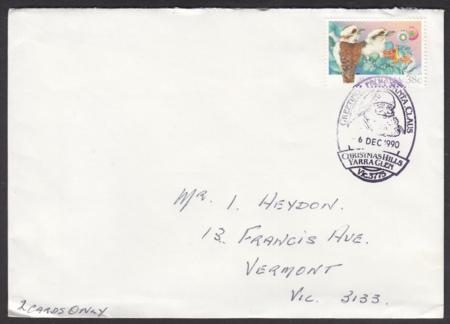 38c
GREETINGS FROM SANTA CLAUS
6 DEC 1990
CHRISTMAS HILLS
YARRA GLEN
VIC 3775
MR. I. HEYDON.
13 FRANCIS AVE.
VERMONT
VIC. 3133.
2 CARDS ONLY